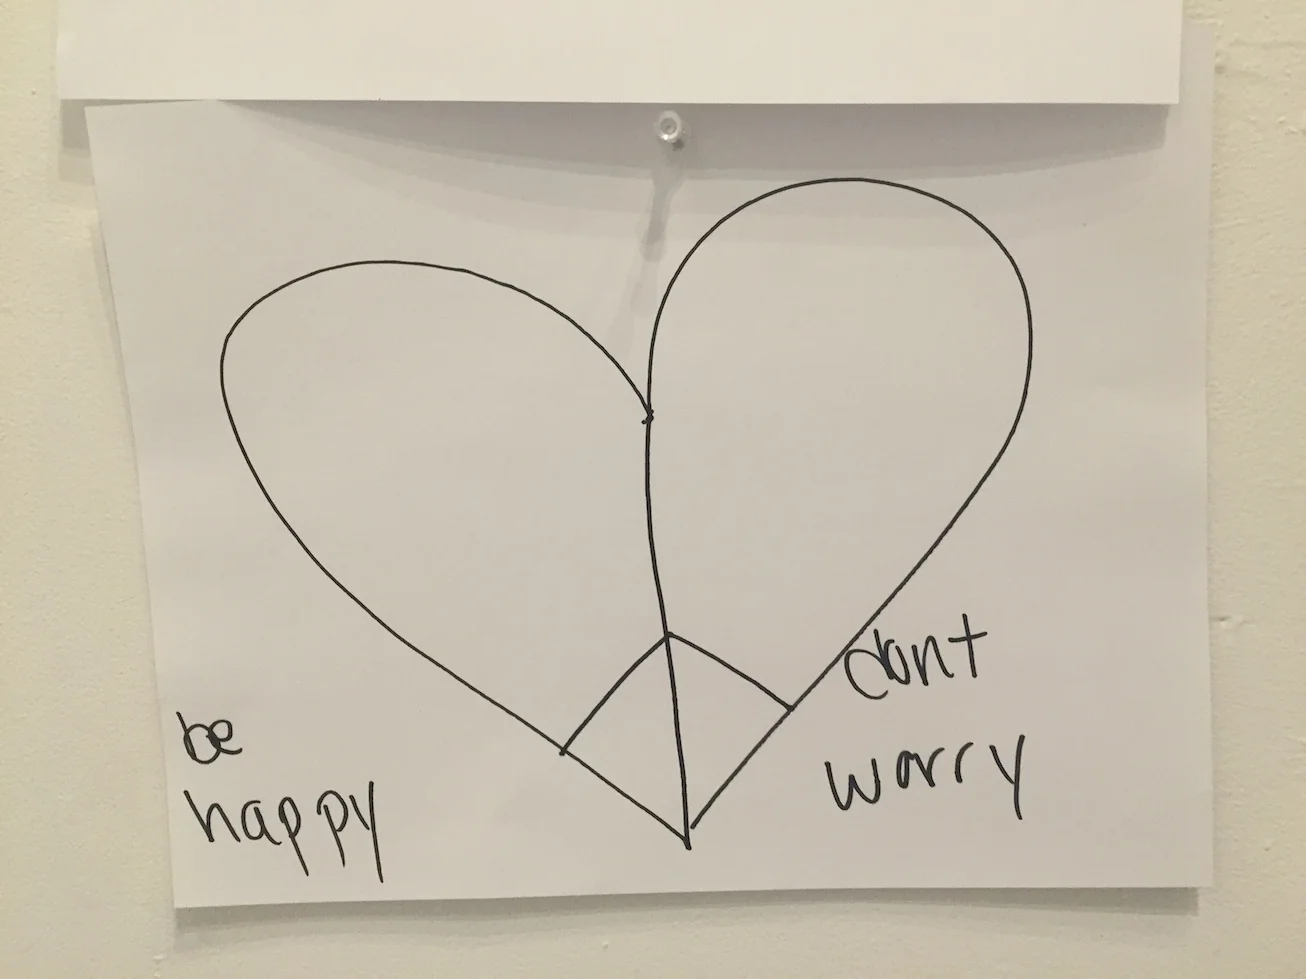 be
happy
dont
worry